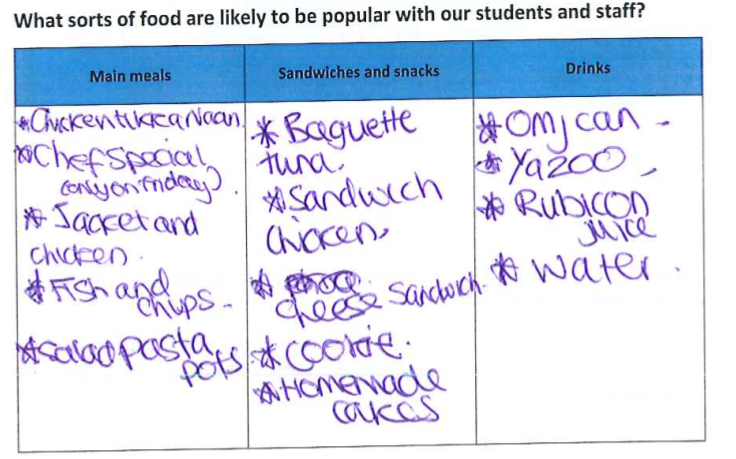 What sorts of food are likely to be popular with our students and staff?
Main meals
Sandwiches and snacks
Drinks
*Chicken tikka Naan.
*Chef Special
(only on friday).
* Jacket and
chicken.
* Fish and
chips-
*salad pasta
pots
* Baguette
tuna.
*Sandwich
Chicken.
*
cheese Sandwich.
* cookie.
*Homemade
cakes
* Omj can -
* Yazoo -
* Rubicon
juice
* water.